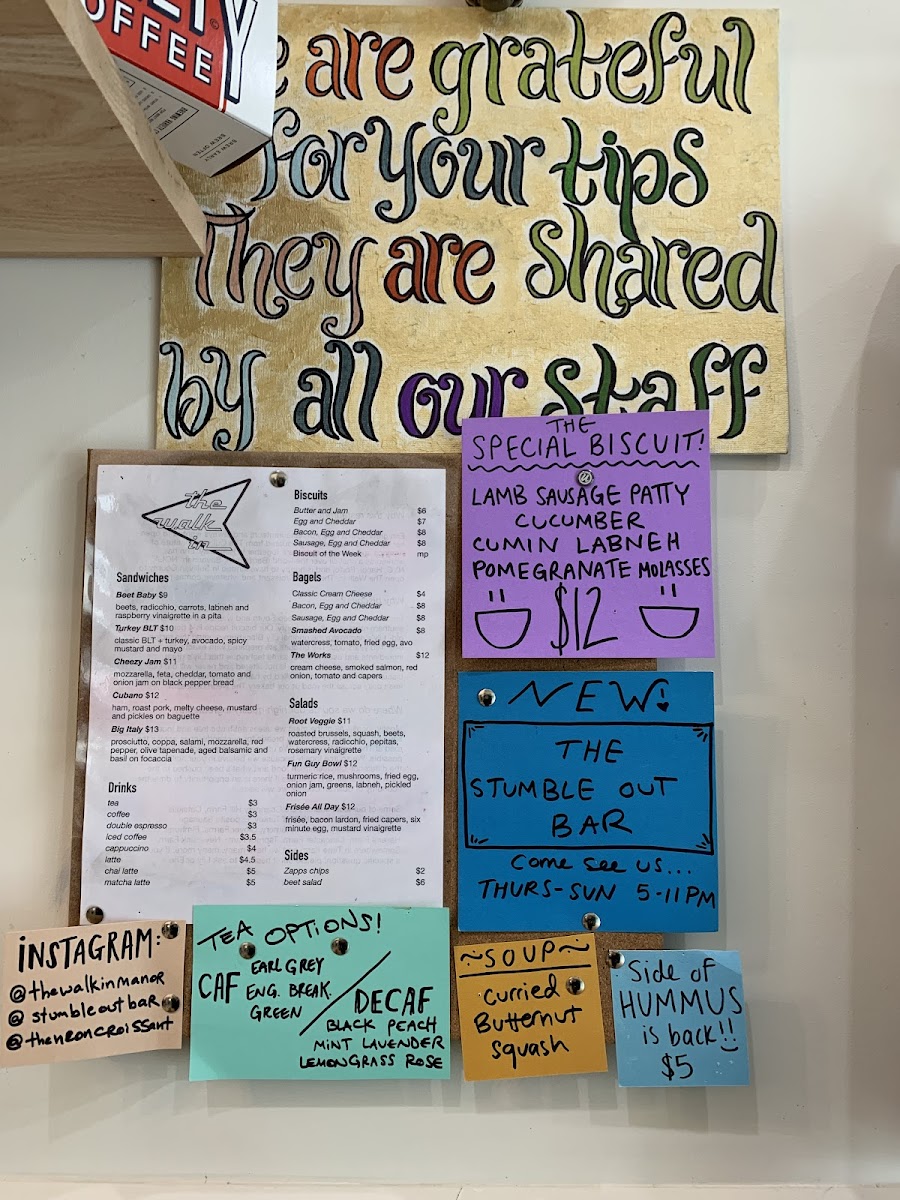 LTY
OFFEE
BREW OFTEN
BREW EARLY
are grateful
for your tips
They are shared
by all our staff
the
walk
in
Sandwiches
Beet Baby $9
beets, radicchio, carrots, labneh and
raspberry vinaigrette in a pita
Turkey BLT $10
classic BLT + turkey, avocado, spicy
mustard and mayo
Cheezy Jam $11
mozzarella, feta, cheddar, tomato and
onion jam on black pepper bread
Cubano $12
ham, roast pork, melty cheese, mustard
and pickles on baguette
Big Italy $13
prosciutto, coppa, salami, mozzarella, red
pepper, olive tapenade, aged balsamic and
basil on focaccia
Drinks
tea $3
coffee $3
double espresso $3
iced coffee $3.5
cappuccino $4
latte $4.5
chai latte $5
matcha latte $5
Biscuits
Butter and Jam $6
Egg and Cheddar $7
Bacon, Egg and Cheddar $8
Sausage, Egg and Cheddar $8
Biscuit of the Week mp
Bagels
Classic Cream Cheese $4
Bacon, Egg and Cheddar $8
Sausage, Egg and Cheddar $8
Smashed Avocado $8
watercress, tomato, fried egg, avo
The Works $12
cream cheese, smoked salmon, red
onion, tomato and capers
Salads
Root Veggie $11
roasted brussels, squash, beets,
watercress, radicchio, pepitas,
rosemary vinaigrette
Fun Guy Bowl $12
turmeric rice, mushrooms, fried egg,
onion jam, greens, labneh, pickled
onion
Frisée All Day $12
frisée, bacon lardon, fried capers, six
minute egg, mustard vinaigrette
Sides
Zapps chips $2
beet salad $6
THE
SPECIAL BISCUIT!
LAMB SAUSAGE PATTY
CUCUMBER
CUMIN LABNEH
POMEGRANATE MOLASSES
$12
NEW!
THE
STUMBLE OUT
BAR
Come see us...
THURS-SUN 5-11PM
INSTAGRAM:
@thewalkinmanor
@stumbleoutbar
@theneoncroissant
TEA OPTIONS!
CAF
EARL GREY
ENG. BREAK.
GREEN
DECAF
BLACK PEACH
MINT LAVENDER
LEMONGRASS ROSE
~SOUP~
Curried
Butternut
Squash
Side of
HUMMUS
is back!!
$5